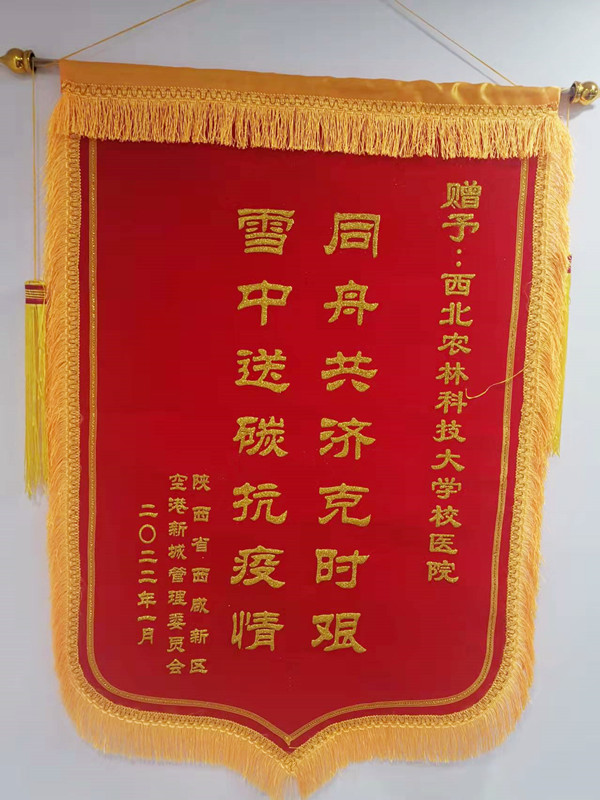 赠予：西北农林科技大学校医院
同舟共济克时艰
雪中送碳抗疫情
陕西省西咸新区
空港新城管理委员会
二〇二二年一月